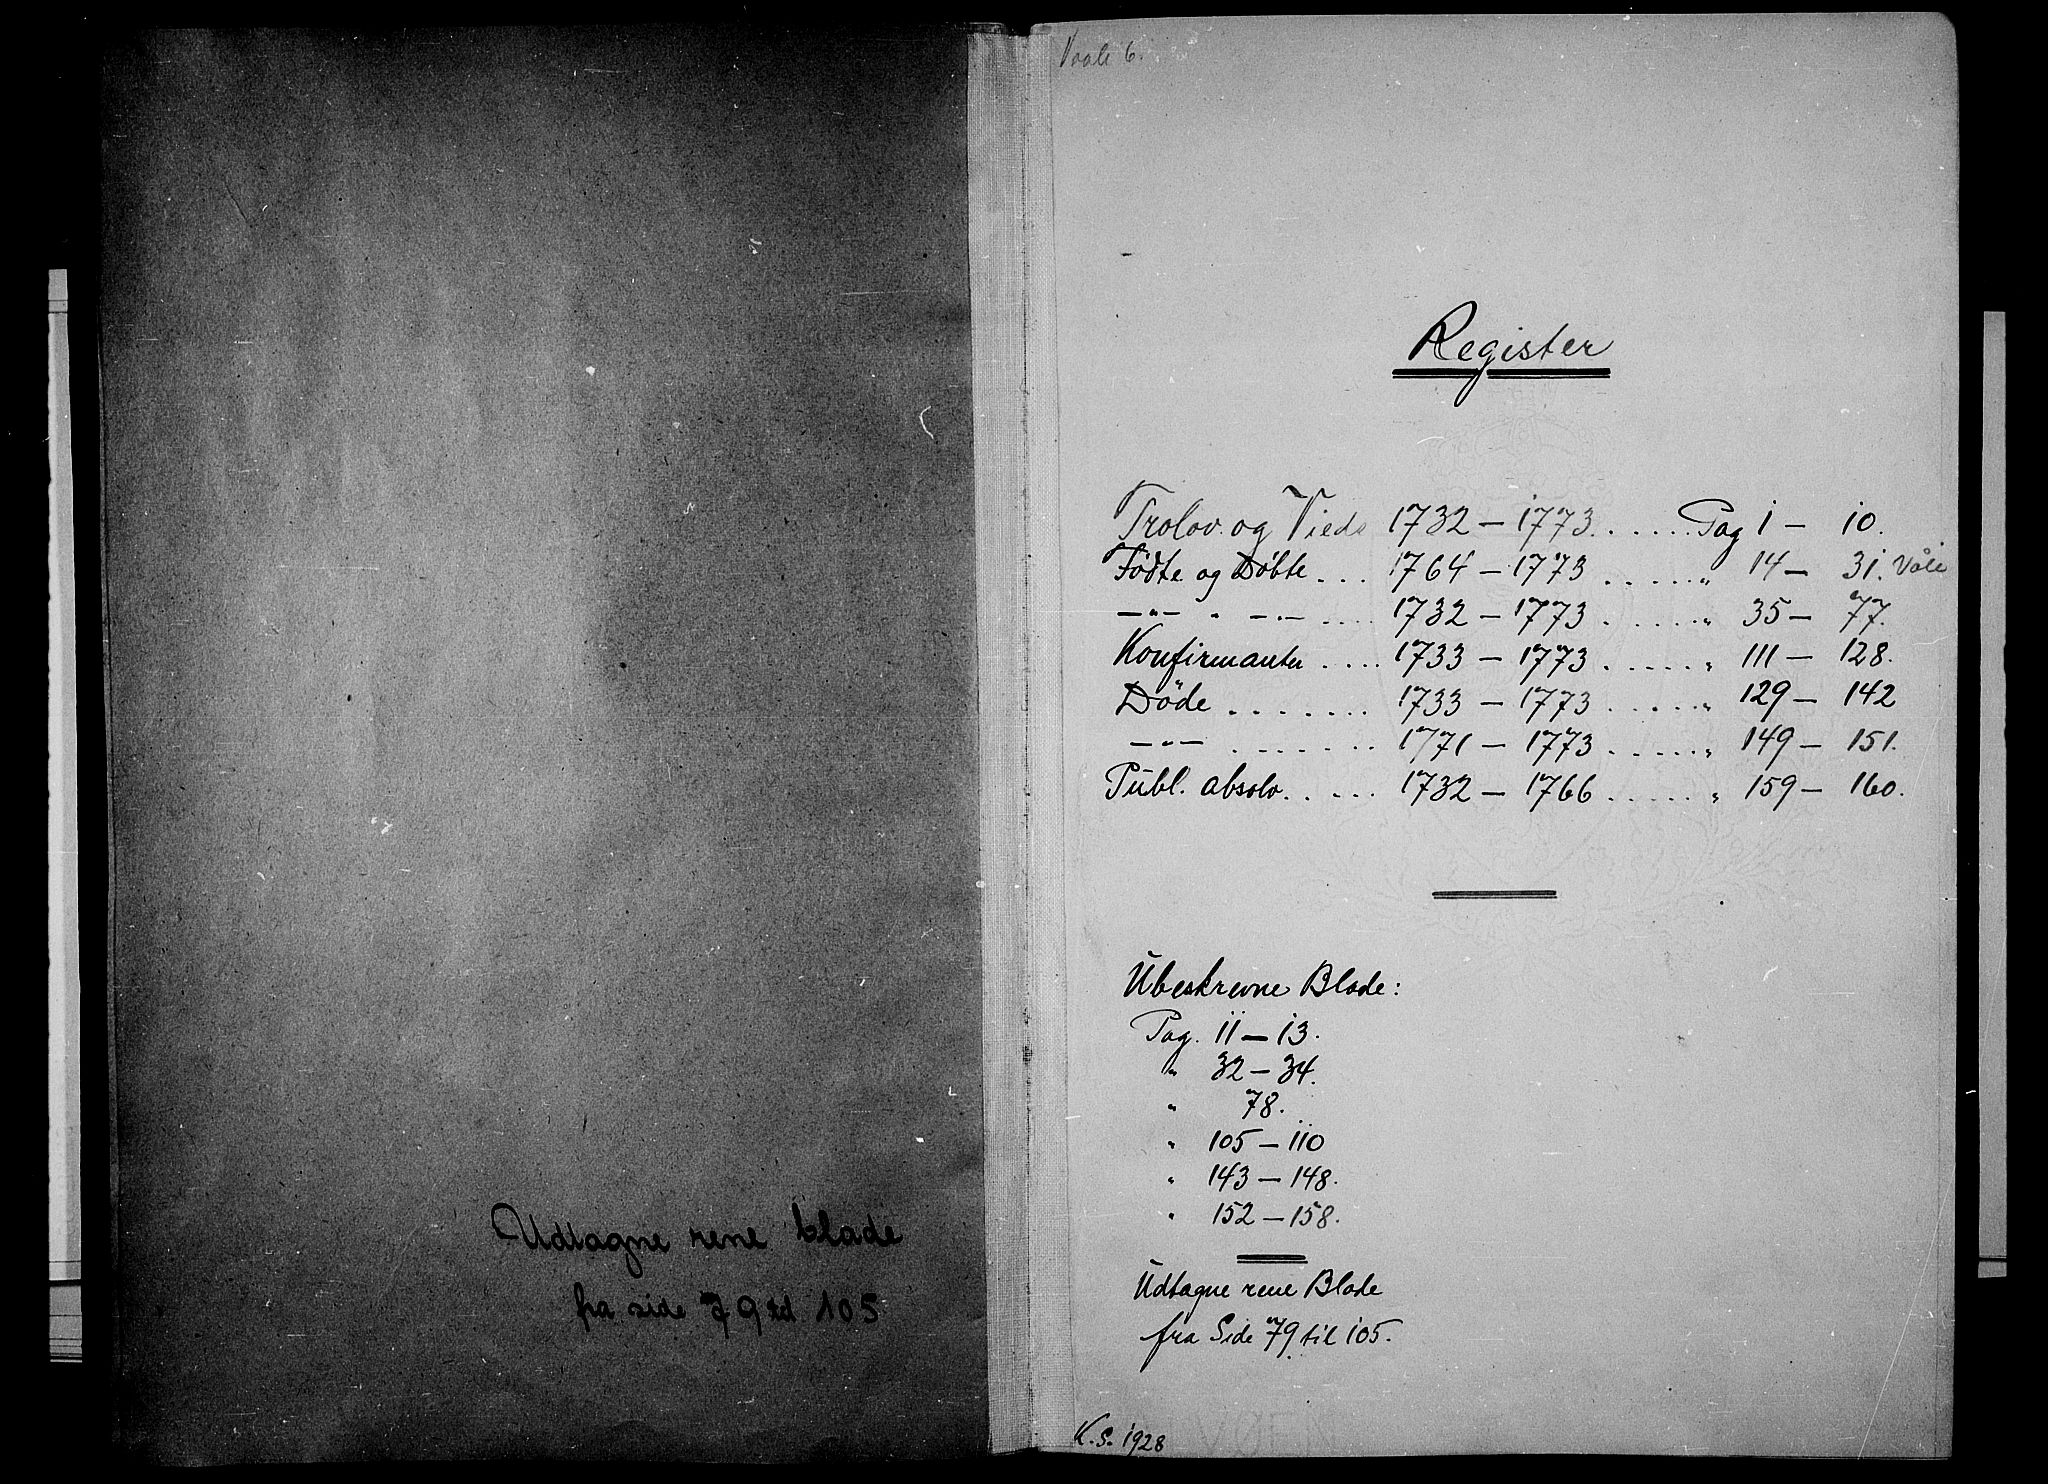 Udtagne rene blade
fra side 79 til 105
Vaale 6.
Register
Trolov. og Viede 1732 – 1773. . . . . . Pag 1 – 10.
Födte og Döbte . . . 1764 – 1773 . . . . . . " 14 – 31. Våle
—"— " —"— . . . . 1732 – 1773 . . . . . . " 35 – 77.
Konfirmanter . . . . 1733 – 1773 . . . . . . " 111 – 128.
Döde . . . . . . . 1733 – 1773 . . . . . . " 129 – 142
—"— . . . . . . . 1771 – 1773 . . . . . . " 149 – 151.
Publ. absolv. . . . . 1732 – 1766 . . . . . . " 159 – 160.
Ubeskrevne Blade:
Pag. 11 – 13.
" 32 – 34.
" 78.
" 105 – 110
" 143 – 148.
" 152 – 158.
Udtagne rene Blade
fra Side 79 til 105.
K. S. 1928